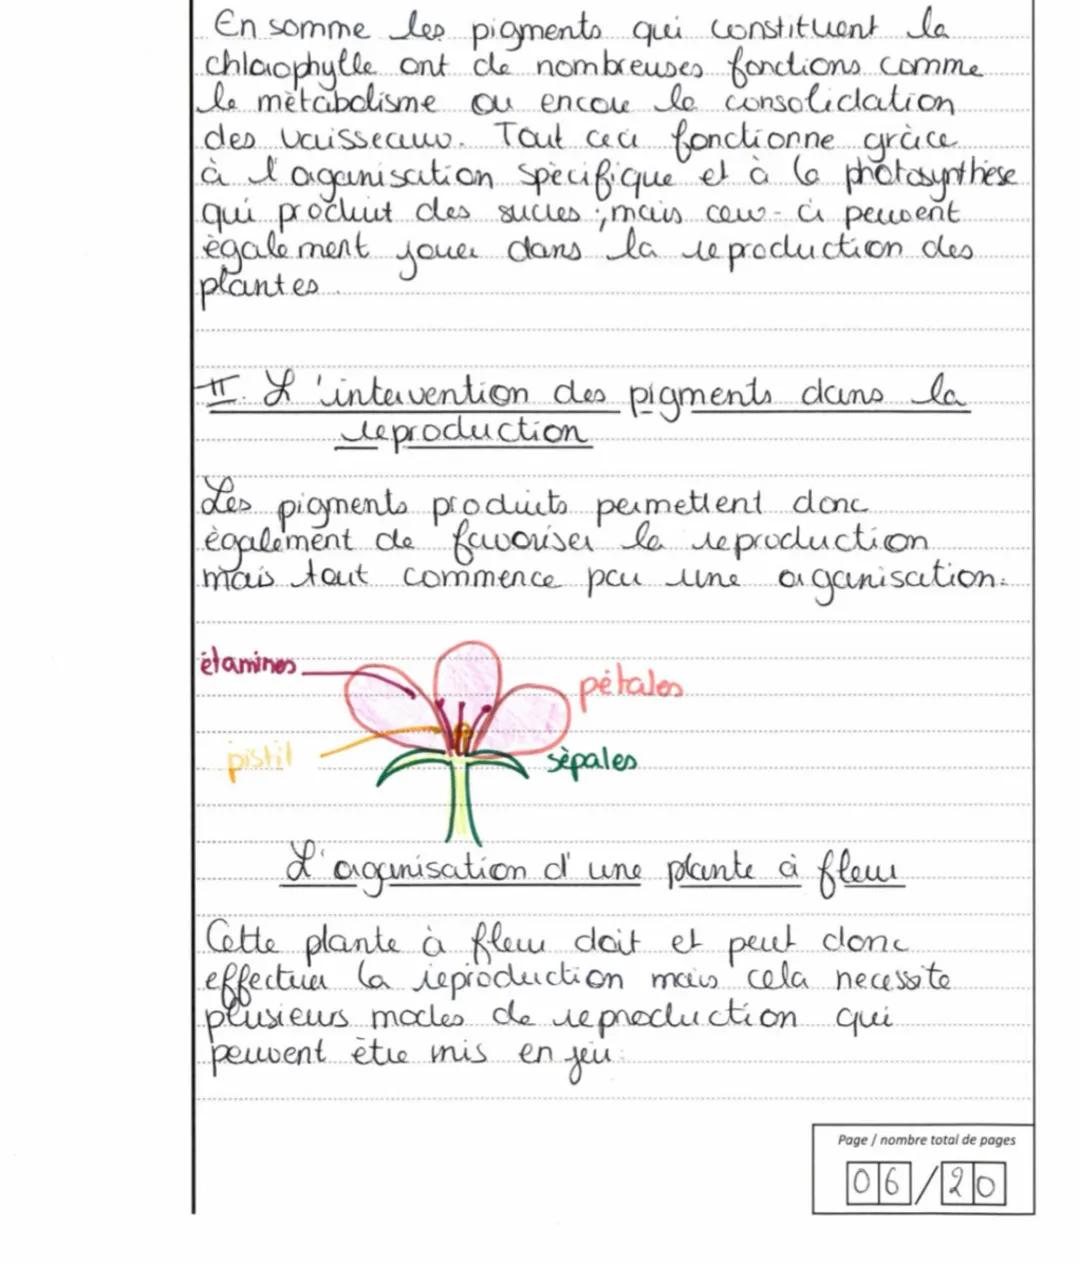 En somme les pigments qui constituent la
chlorophylle ont de nombreuses fonctions comme
le mètabolisme ou encore la consolidation
des vaisseaux. Tout ceci fonctionne gràce
à l'organisation spècifique et à la photosynthèse
qui produit des sucres ; mais ceux-ci peuvent
ègalement jouer dans la reproduction des
plantes.
II. L'intervention des pigments dans la
reproduction
Les pigments produits permettent donc
ègalement de favoriser la reproduction
mais tout commence par une organisation:
ètamines
pètales
pistil
sèpales
L'organisation d'une plante à fleur
Cette plante à fleur doit et peut donc
effectuer la reproduction mais cela necessite
plusieurs modes de reproduction qui
peuvent ètre mis en jeu:
Page / nombre total de pages
06/20